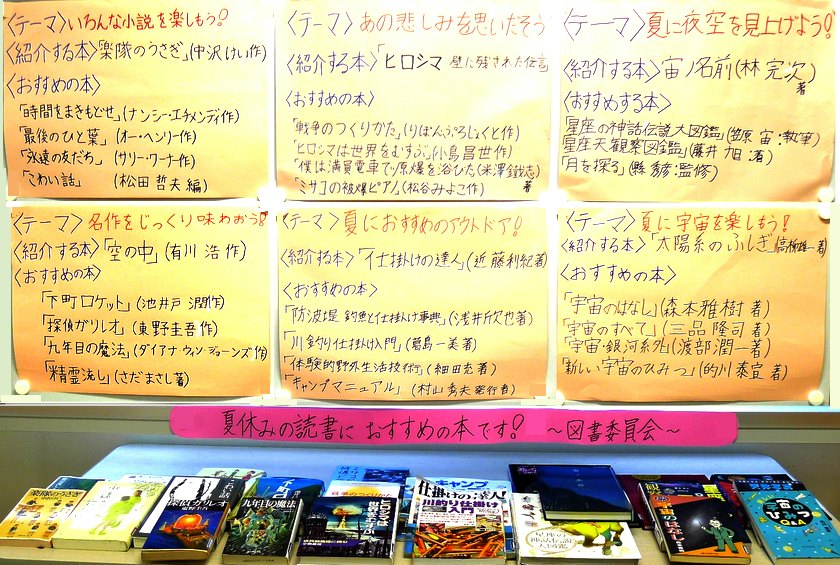 〈テーマ〉いろんな小説を楽しもう!
〈紹介する本〉「楽隊のうさぎ」(中沢けい作)
〈おすすめの本〉
「時間をまきもどせ」(ナンシー・エチメンディ作)
「最後のひと葉」(オー・ヘンリー作)
「永遠の友だち」(サリー・ワーナ作)
「こわい話」(松田 哲夫 編)
〈テーマ〉あの悲しみを思いだそう
〈紹介する本〉「ヒロシマ 壁に残された伝言
〈おすすめの本〉
「戦争のつくりかた」(りぼん・ぷろじぇくと作)
「ヒロシマは世界をむすぶ」(小島昌世作)
「僕は満員電車で原爆を浴びた」(米澤鐡志)著
「ミサコの被爆ピアノ」(松谷みよこ作)
〈テーマ〉夏に夜空を見上げよう!
〈紹介する本〉宙ノ名前(林 完次)著
〈おすすめする本〉
「星座の神話伝説大図鑑」(笠原 宙:執筆)
「星座天観察図鑑」(藤井 旭:著)
「月を探る」(縣 秀彦:監修)
〈テーマ〉名作をじっくり味わおう!
〈紹介する本〉「空の中」(有川 浩 作)
〈おすすめの本〉
「下町ロケット」(池井戸 潤作)
「探偵ガリレオ」(東野圭吾作)
「九年目の魔法」(ダイアナ ウィン・ジョーンズ作)
「精霊流し」(さだまさし著)
〈テーマ〉夏におすすめのアウトドア!
〈紹介する本〉「仕掛けの達人」(近藤利紀著)
〈おすすめの本〉
「防波堤 釣魚と仕掛け事典」(浅井欣也著)
「川釣り仕掛け入門」(葛島一美著)
「体験的野外生活技術」(細田充著)
「キャンプマニュアル」(村山秀夫発行者)
〈テーマ〉夏に宇宙を楽しもう!
〈紹介する本〉「太陽系のふしぎ」
〈おすすめの本〉
「宇宙のはなし」(森本雅樹 著)
「宇宙のすべて」(三品 隆司 著)
「宇宙・銀河系外」(渡部潤一著)
「新しい宇宙のひみつ」(的川泰宣 著)
夏休みの読書に おすすめの本です! ～図書委員会～
楽隊のうさぎ
探偵ガリレオ
東野圭吾
九年目の魔法
戦争のつくりかた
ヒロシマは世界をむすぶ
キャンプ
仕掛けの達人
川釣り仕掛け入門
星座の神話伝説大図鑑
宇宙のはなし
Q&A